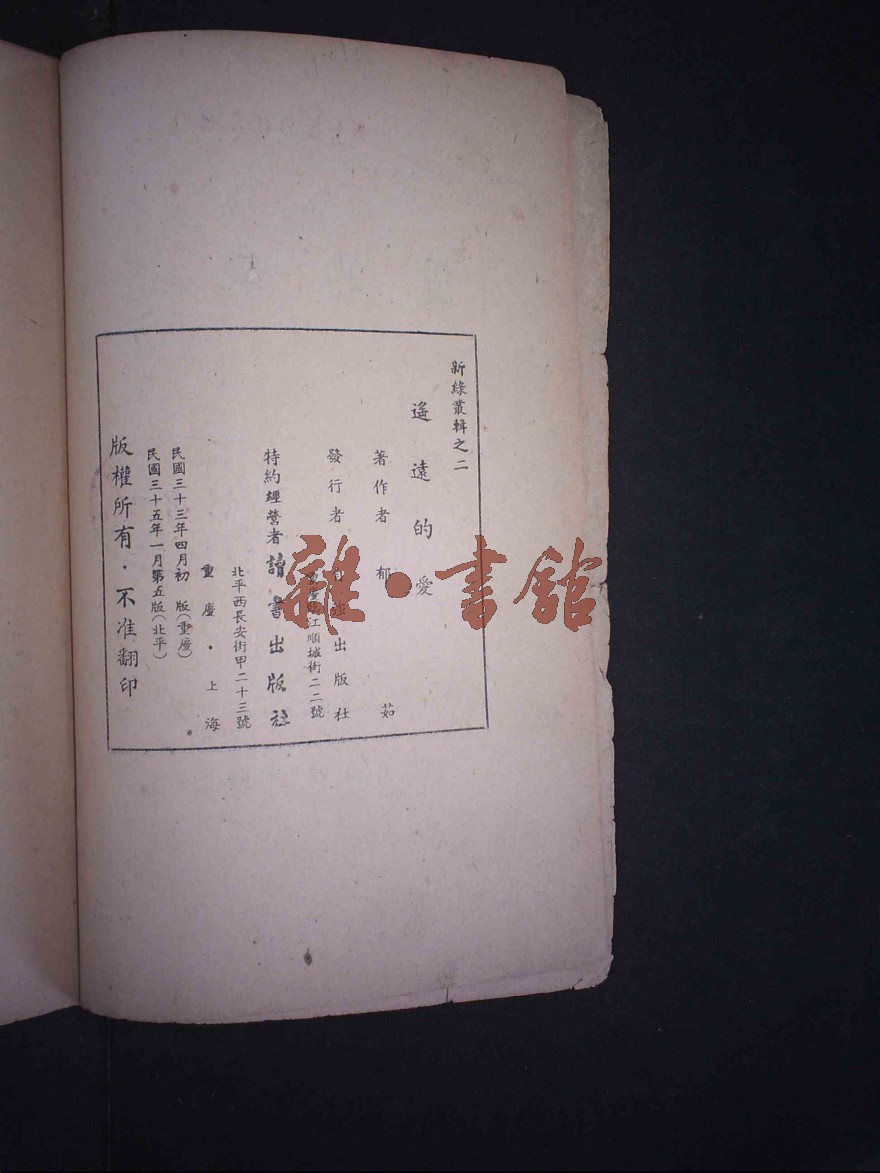 新綠叢輯之二
遙遠的愛
著作者 郁茹
發行者 自強出版社
江順城街二二號
特約經營者 讀書出版社
北平西長安街甲二十三號
重慶·上海
民國三十三年四月初 版(重慶)
民國三十五年一月第五版(北平)
版權所有·不准翻印
雜·書館